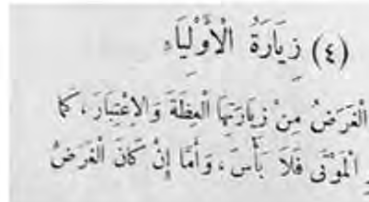 (٤) زِيَارَةُ الْأَوْلِيَاءِ
الْغَرَضُ مِنْ زِيَارَتِهَا الْعِظَةَ وَالِاعْتِبَارَ، كَمَا
الْمَوْتَى فَلَا بَأْسَ، وَأَمَّا إِنْ كَانَ الْغَرَضُ